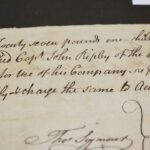 Twenty seven pounds one shill
Capt. John Ripley of the
for use of his Company
& charge the same to
Tho. Seymour